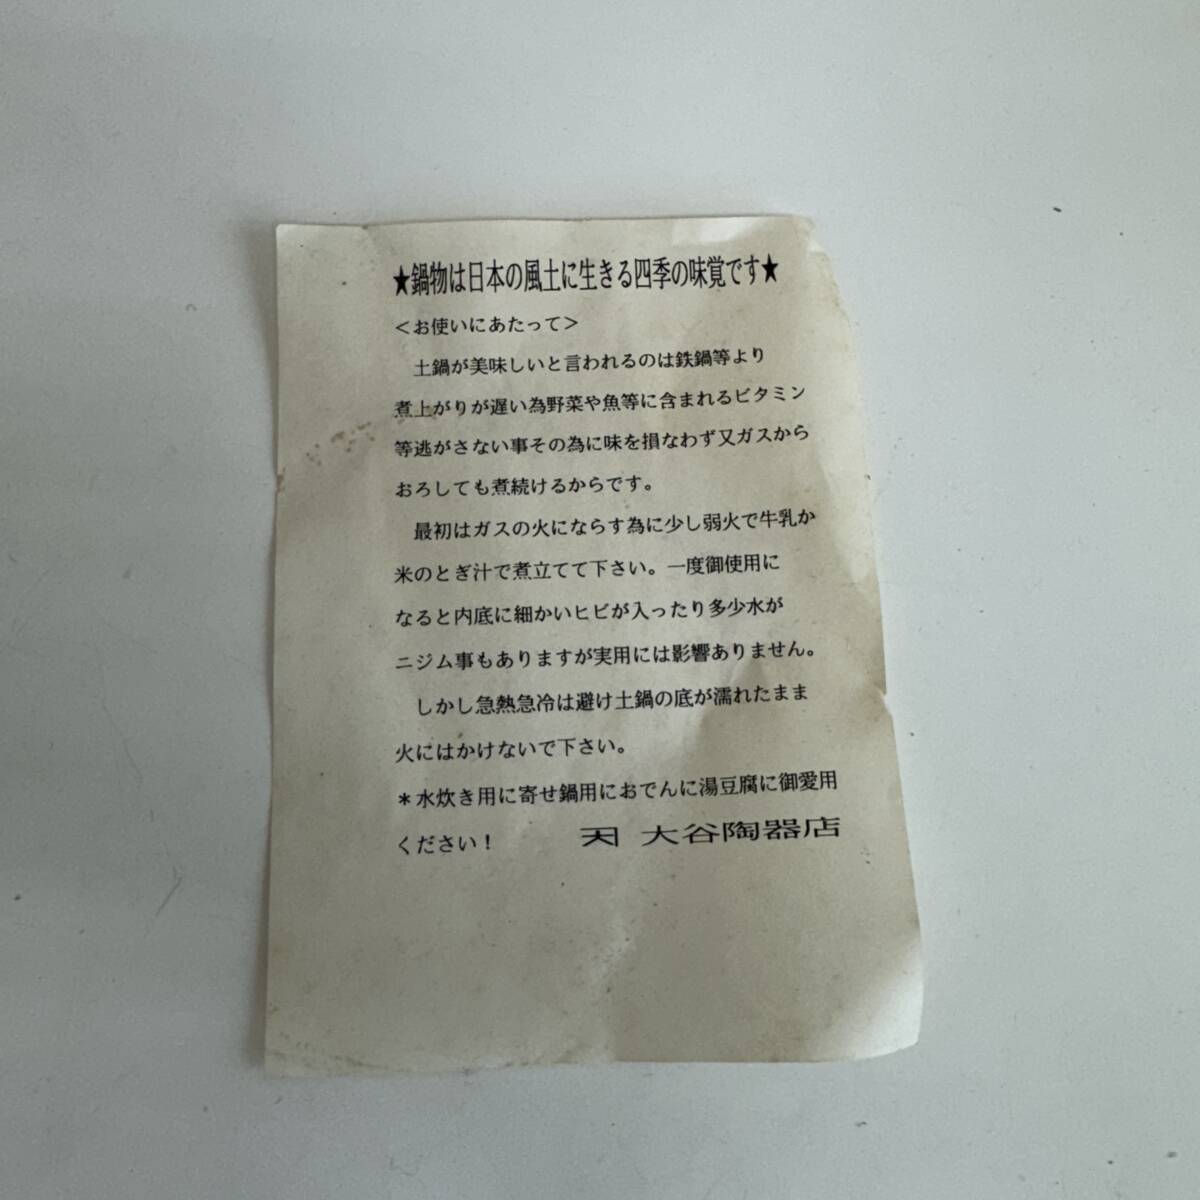 ★鍋物は日本の風土に生きる四季の味覚です★
＜お使いにあたって＞
　土鍋が美味しいと言われるのは鉄鍋等より
煮上がりが遅い為野菜や魚等に含まれるビタミン
等逃がさない事その為に味を損なわず又ガスから
おろしても煮続けるからです。
　最初はガスの火にならす為に少し弱火で牛乳か
米のとぎ汁で煮立てて下さい。一度御使用に
なると内底に細かいヒビが入ったり多少水が
ニジム事もありますが実用には影響ありません。
　しかし急熱急冷は避け土鍋の底が濡れたまま
火にはかけないで下さい。
＊水炊き用に寄せ鍋用におでんに湯豆腐に御愛用
ください！　大谷陶器店